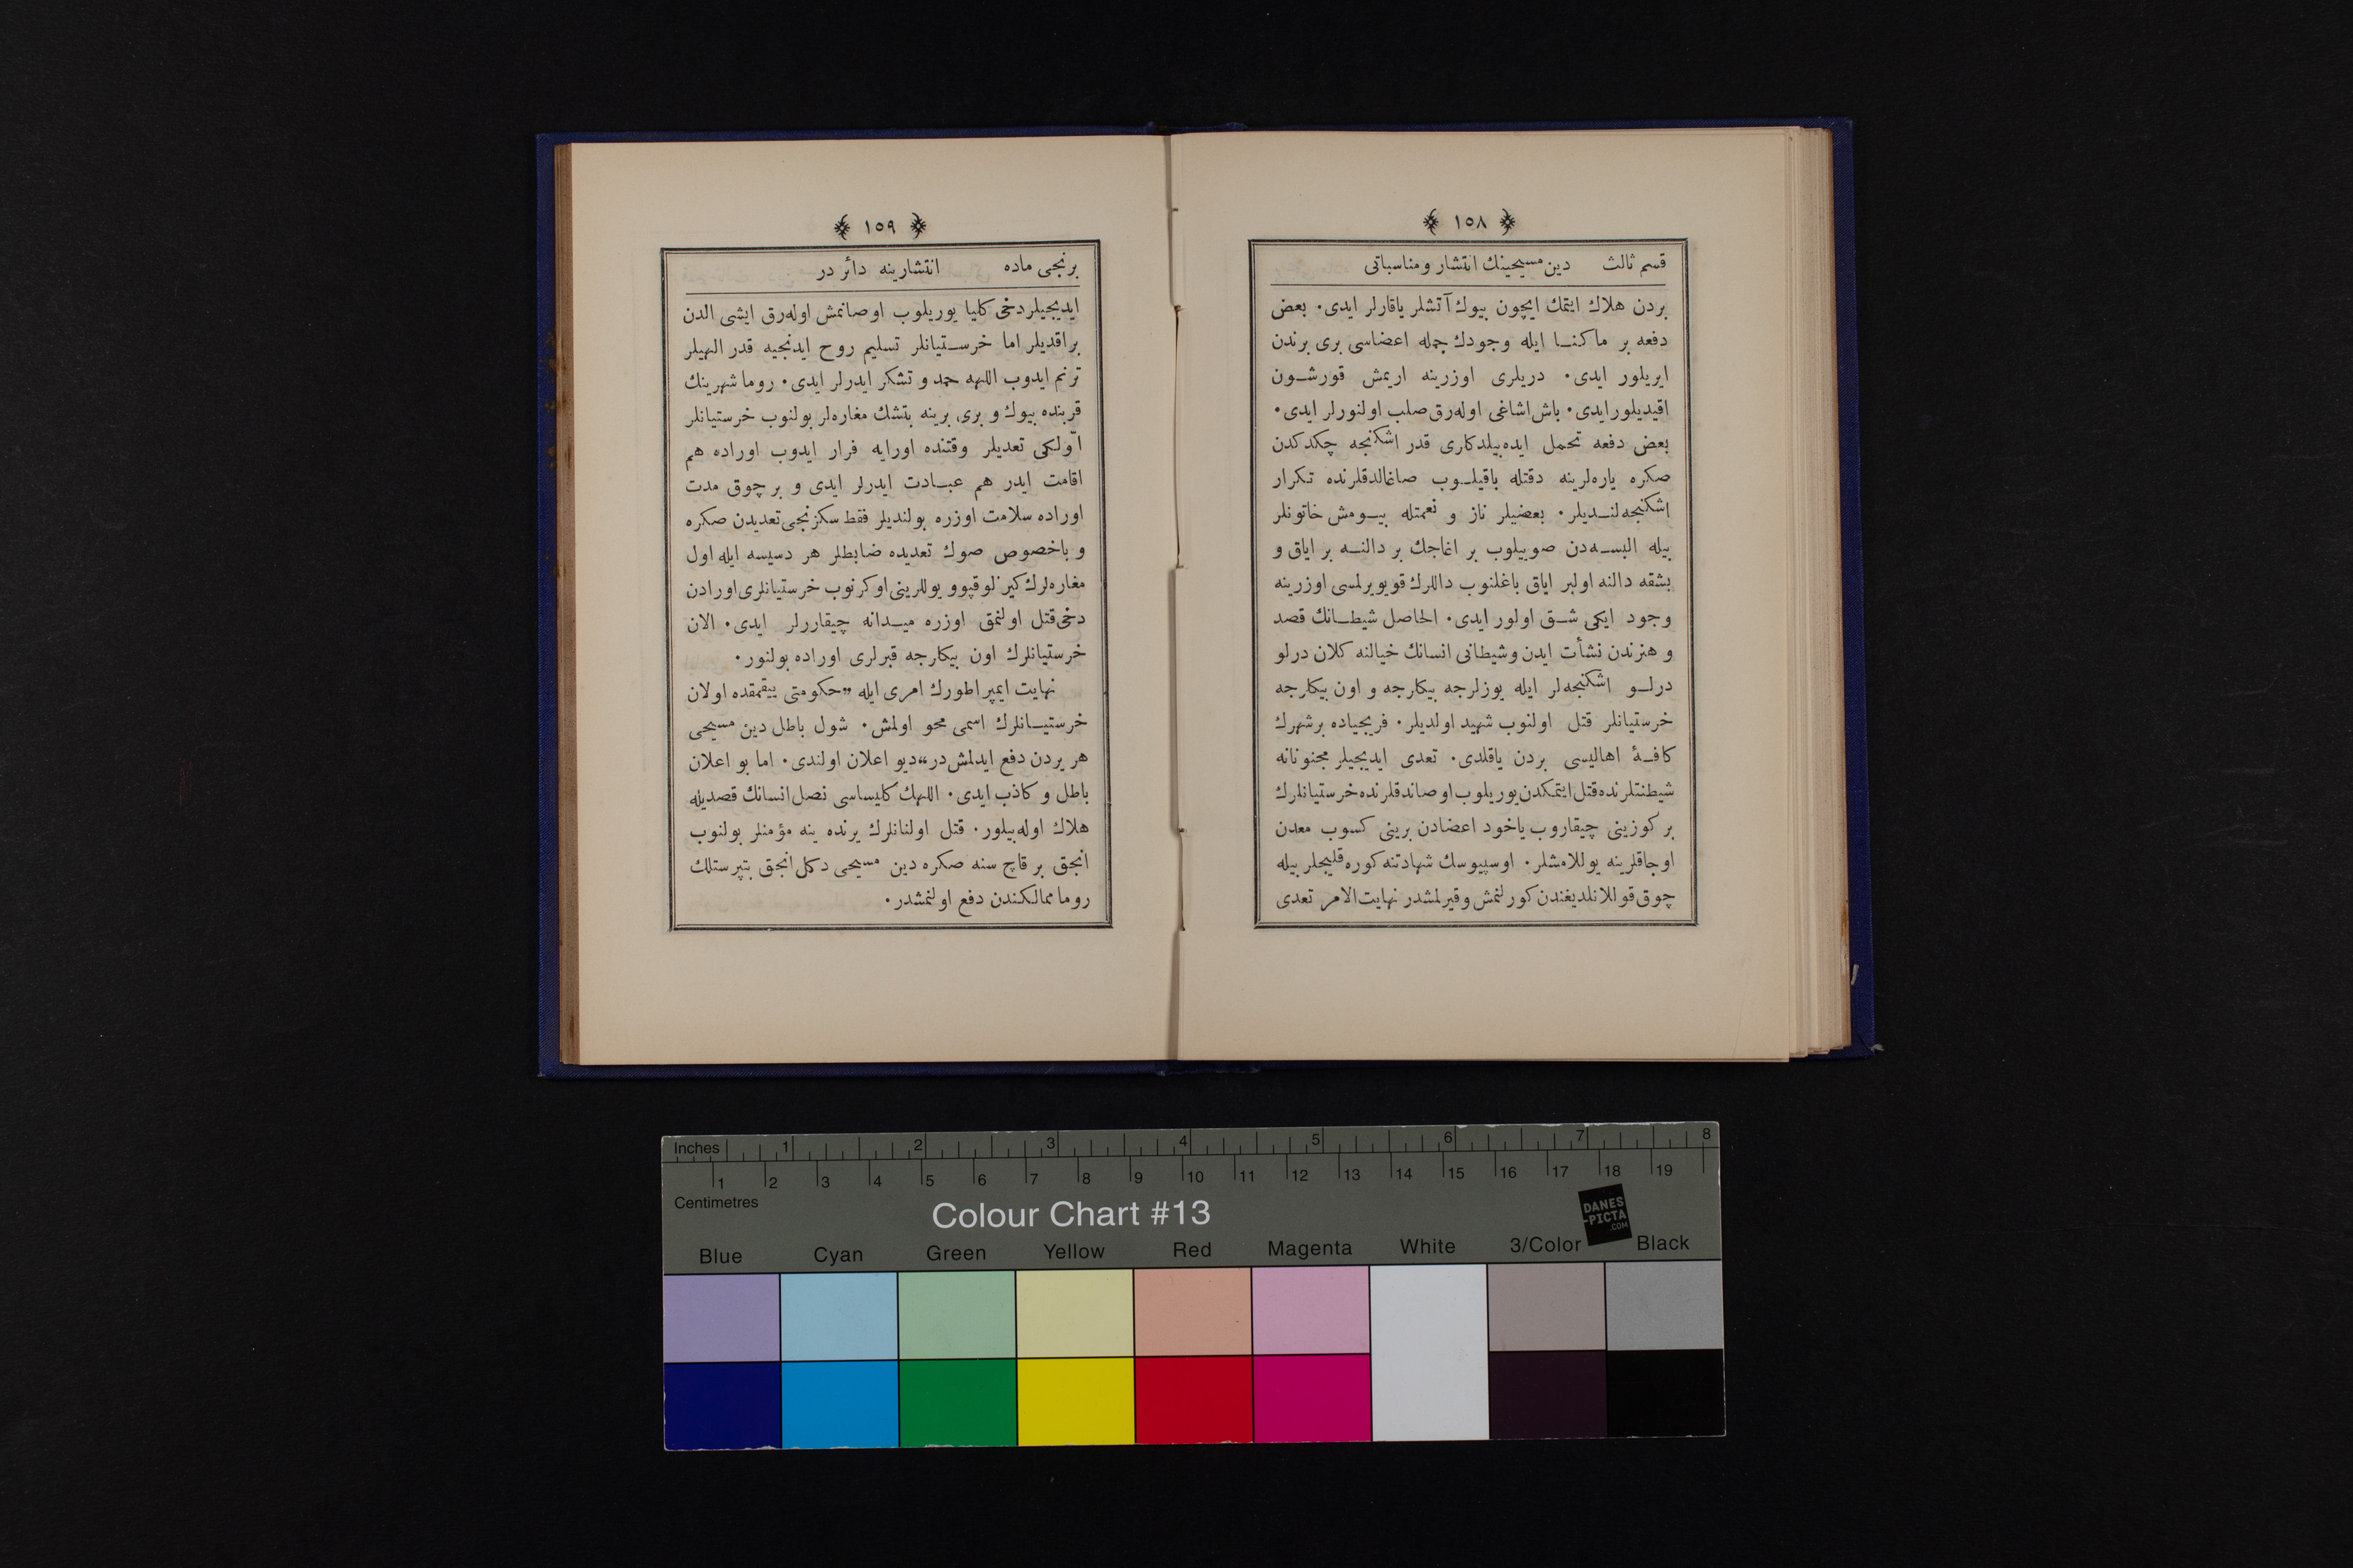 ﴾ ١٥٨ ﴿
قسم ثالث دين مسيحينك انتشار ومناسباتى
بردن هلاك ايتمك ايچون بيوك آتشلر ياقارلر ايدى٠ بعض
دفعه بر ماكنا ايله وجودك جمله اعضاسى برى برندن
ايريلور ايدى٠ دريلرى اوزرينه اريمش قورشون
اقيديلور ايدى٠ باش اشاغى اوله‌رق صلب اولنورلر ايدى٠
بعض دفعه تحمل ايده‌بيلدكلرى قدر اشكنجه چكدكدن
صكره ياره‌لرينه دقتله باقيلوب صاغالدقلرنده تكرار
اشكنجه‌لنديلر٠ بعضيلر ناز و نعمتله بيومش خاتونلر
بيله البسه‌دن صويلوب بر اغاجك بر دالنه بر اياق و
بشقه دالنه اولبر اياق باغلنوب داللرك قويويرلمسى اوزرينه
وجود ايكى شق اولور ايدى٠ الحاصل شيطانك قصد
و هنرندن نشأت ايدن وشيطانى انسانك خيالنه كلان درلو
درلو اشكنجه‌لر ايله يوزلرجه بيكلرجه و اون بيكلرجه
خرستيانلر قتل اولنوب شهيد اولديلر٠ فريجياده برشهرك
كافهٔ اهاليسى بردن ياقلدى٠ تعدى ايديجيلر مجنونانه
شيطنتلرنده قتل ايتمكدن يوريلوب اوصاندقلرنده خرستيانلرك
بر كوزينى چيقاروب ياخود اعضادن برينى كسوب معدن
اوجاقلرينه يوللامشلر٠ اوسپيوسك شهادتنه كوره قليجلر بيله
چوق قوللانلديغندن كورلنمش وقيرلمشدر نهايت الامر تعدى
﴾ ١٥٩ ﴿
برنجى ماده انتشارينه دائر در
ايديجيلر دخى كليا يوريلوب اوصانمش اوله‌رق ايشى الدن
براقديلر اما خرستيانلر تسليم روح ايدنجيه قدر الهيلر
ترنم ايدوب اللهه حمد و تشكر ايدرلر ايدى٠ روما شهرينك
قربنده بيوك و برى برينه بتشك مغاره‌لر بولنوب خرستيانلر
اوّلكى تعديلر وقتنده اورايه فرار ايدوب اوراده هم
اقامت ايدر هم عبادت ايدرلر ايدى و بر چوق مدت
اوراده سلامت اوزره بولنديلر فقط سكزنجى تعديدن صكره
و باخصوص صوك تعديده ضابطلر هر دسيسه ايله اول
مغاره‌لرك كيزلو قپوو يوللرينى اوكرنوب خرستيانلرى اورادن
دخى قتل اولنمق اوزره ميدانه چيقاررلر ايدى٠ الان
خرستيانلرك اون بيكلرجه قبرلرى اوراده بولنور٠
نهايت ايمپراطورك امرى ايله „حكومتى ييقمقده اولان
خرستيانلرك اسمى محو اولمش٠ شول باطل دين مسيحى
هر يردن دفع ايدلمش در“ ديو اعلان اولندى٠ اما بو اعلان
باطل و كاذب ايدى٠ اللهك كليساسى نصل انسانك قصديله
هلاك اوله‌بيلور٠ قتل اولنانلرك يرنده ينه مؤمنلر بولنوب
انجق بر قاچ سنه صكره دين مسيحى دكل انجق بتپرستلك
روما ممالكندن دفع اولنمشدر٠
Inches 1 2 3 4 5 6 7 8
1 2 3 4 5 6 7 8 9 10 11 12 13 14 15 16 17 18 19
Centimetres
Colour Chart #13
DANES
-PICTA
.COM
Blue Cyan Green Yellow Red Magenta White 3/Color Black